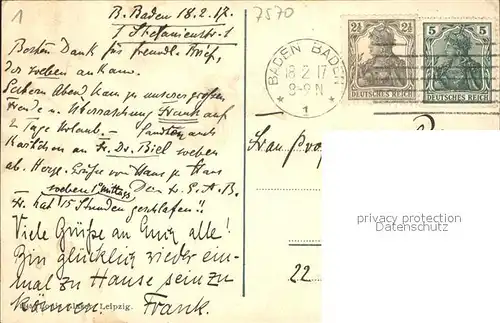 1
B. Baden 18.2.17.
7570
Stefanienstr. 1
Besten Dank für freundl. Brief,
der soeben ankam.
Gestern Abend kam zu unserer großen
Freude u. Überraschung Frank auf
2 Tage Urlaub. – Sandten auch
Kärtchen an Fr. Dr. Biel soeben
ab. Herzl. Grüße von Haus zu Haus
soeben 1 Uhr mittags
hat 15 Stunden geschlafen!!
Viele Grüße an Euch alle!
Bin glücklich wieder ein-
mal zu Hause sein zu
können. Frank.
Leipzig.
BADEN BADEN
18 2 17
8-9 N
* 1 *
2½ 2½
DEUTSCHES REICH
5 5
DEUTSCHES REICH
Frau Prof
22
privacy protection
Datenschutz